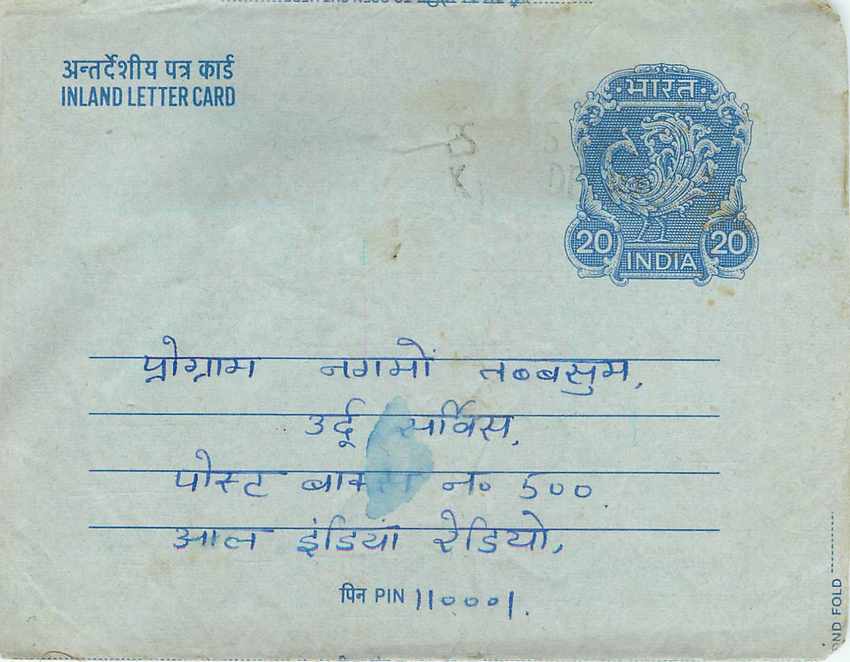 अन्तर्देशीय पत्र कार्ड
INLAND LETTER CARD
भारत
20 20
INDIA
प्रोग्राम नगमों तब्बसुम,
उर्दू सर्विस,
पोस्ट बाक्स न० 500
आल इंडियां रेडियो,
पिन PIN 110001.
OND FOLD